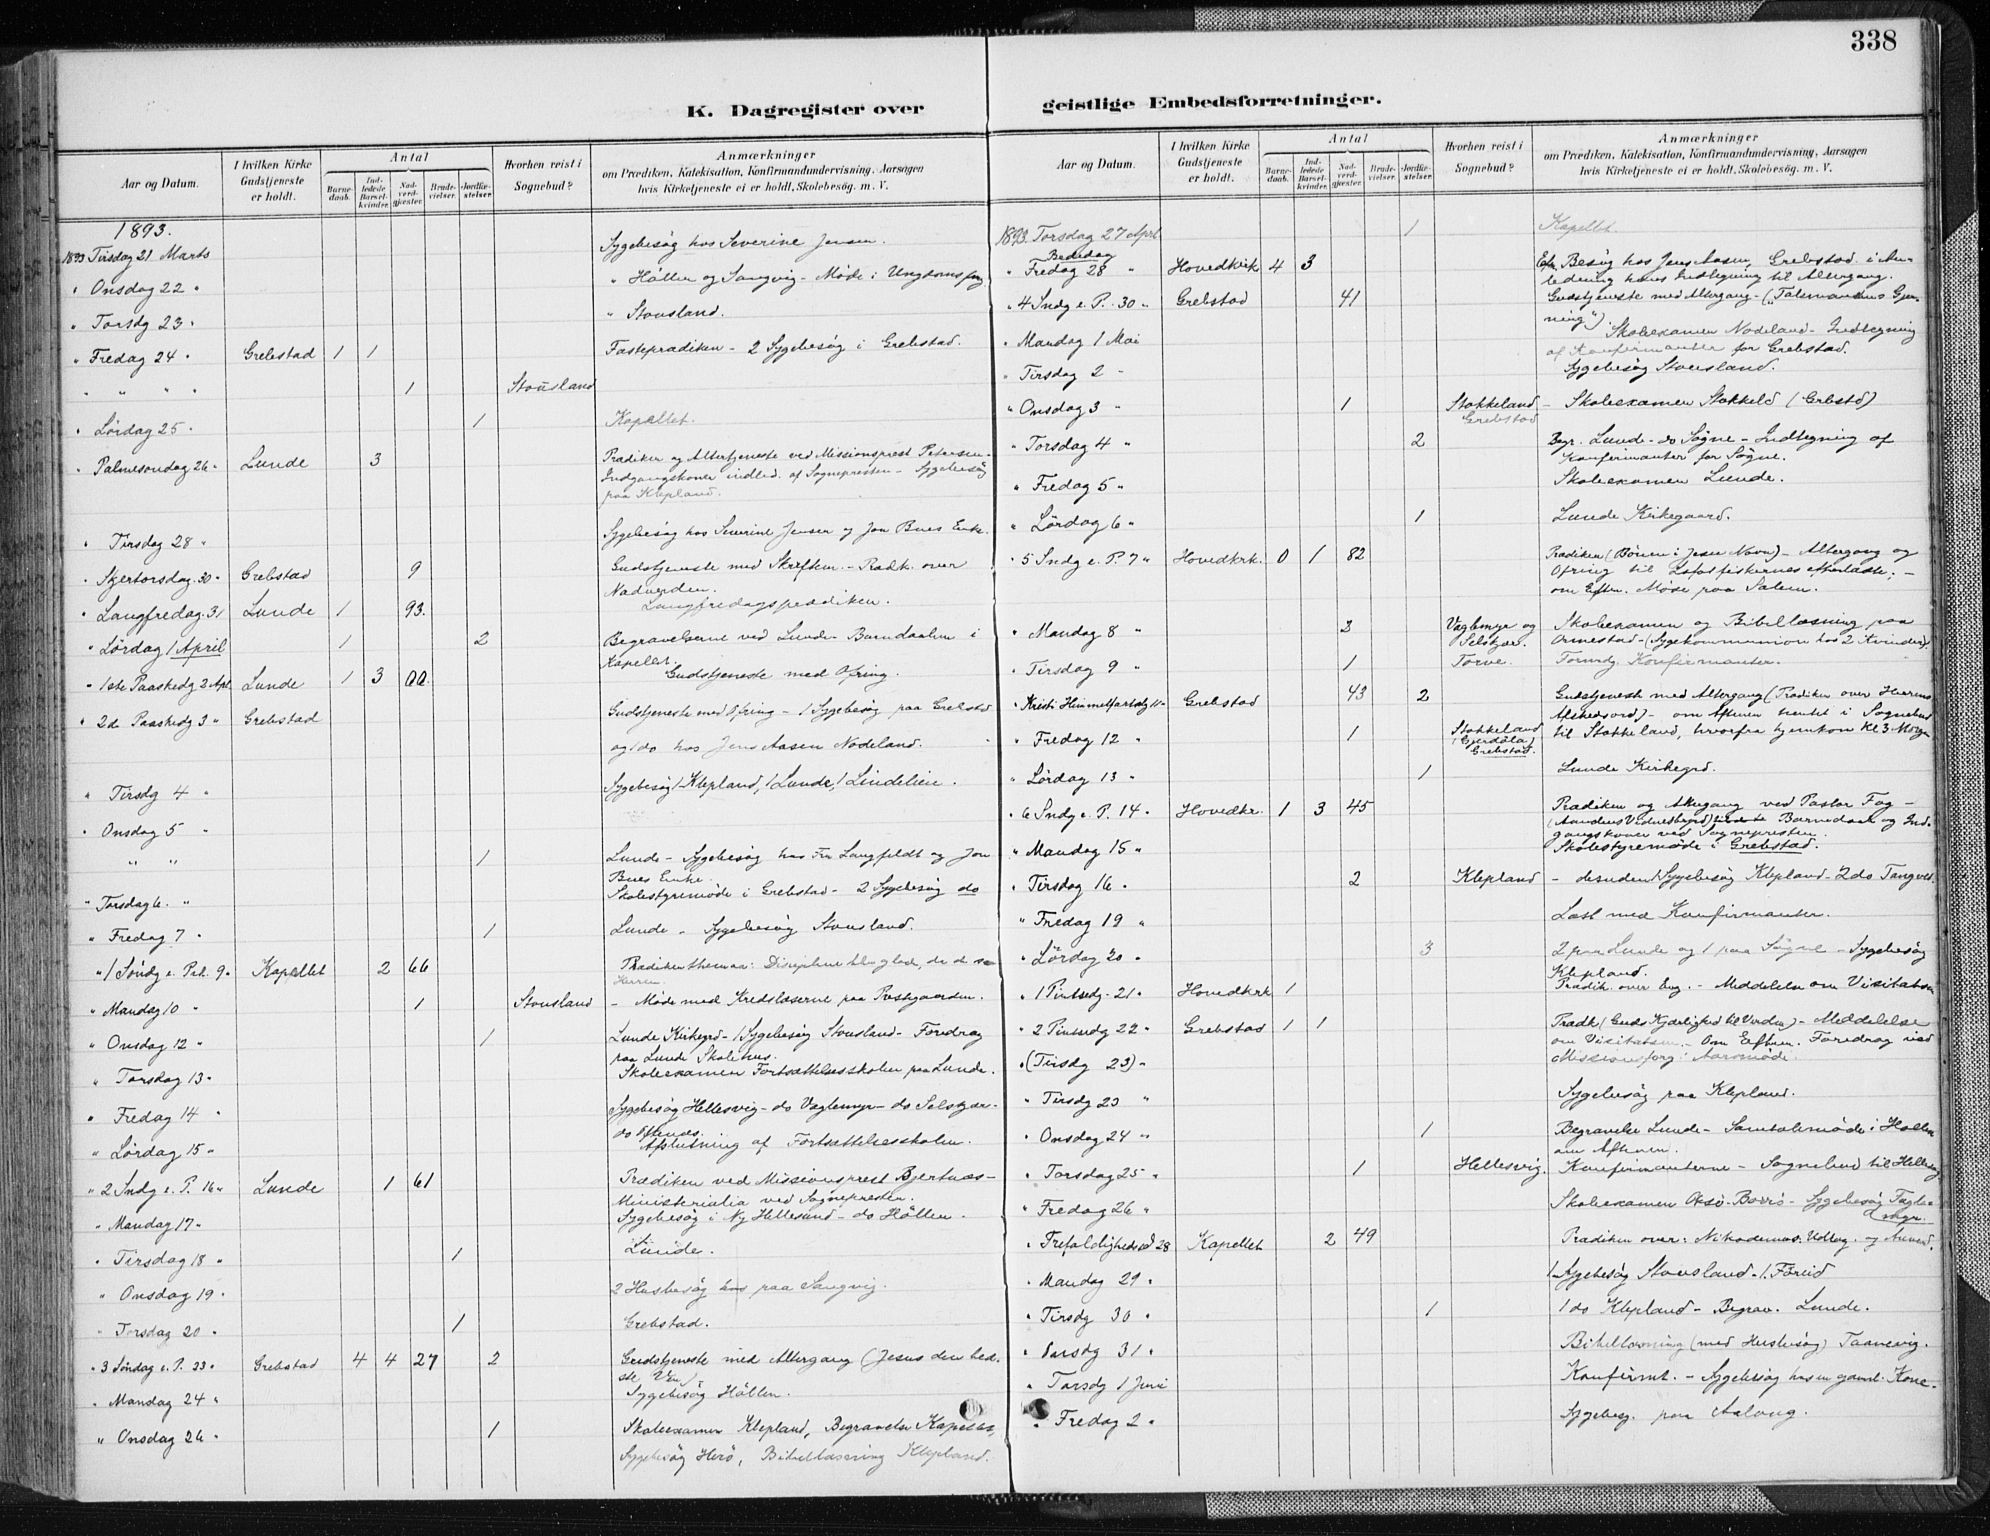 338
K. Dagregister over geistlige Embedsforretninger.
Aar og Datum.
I hvilken Kirke Gudstjeneste er holdt.
Antal
Barnedaab.
Indledede Barselkvinder.
Nadverdgjester.
Brudevielser.
Jordfæstelser.
Hvorhen reist i Sognebud?
Anmærkninger
om Prædiken, Katekisation, Konfirmandundervisning, Aarsagen
hvis Kirketjeneste ei er holdt, Skolebesøg. m. V.
1893.
1893 Tirsdag 21 Marts Sygebesøg hos Severine Jensen.
" Onsdag 22 " " Höllen og Sangvig - Møde i Ungdomsforg
" Torsdg 23 " " Stousland.
" Fredag 24 " Grebstad 1 1 Fasteprædiken - 2 Sygebesøg i Grebstad.
" " " " 1 Stousland
" Lördag 25 " 1 Kapellet.
" Palmesondag 26 " Lunde 3 Prædiken og Altertjeneste ved Missionsprest Petersen -
Indgangskoner indled. af Sognepresten - Sygebesög
paa Klepland.
" Tirsdag 28 " Sygebesøg hos Severine Jensen og Jon Bues Enke.
" Skjertorsdag 30 " Grebstad 9 Gudstjeneste med Skriftem. - Prædk. over
Nadverden.
" Langfredag 31 Lunde 1 93. Langfredagsprædiken.
" Lördag 1 April 1 2 Begravelserne ved Lunde - Barndaaben i
Kapellet.
" 1ste Paaskedg 2 Apl. Lunde 1 3 00 Gudstjeneste med Ofring.
" 2d Paaskedg 3 " Grebstad Gudstjeneste med Ofring - 1 Sygebesøg paa Grebstad
og 1 do hos Jens Aasen Nodeland.
" Tirsdg 4 " Sygebesøg 1 Klepland, 1 Lunde, 1 Lindelien.
" Onsdag 5 "
" " 1 Lunde - Sygebesøg hos Fru Langfeldt og Jon
Bues Enke.
" Torsdag 6. " Skolestyremøde i Grebstad - 2 Sygebesøg do
" Fredag 7 " 1 Lunde - Sygebesøg Stousland.
" 1 Söndg e. Pak. 9 " Kapellet 2 66 Prædikenthema: Disciplene bleve glade, da de saa
Herren.
" Mandag 10 " 1 Stousland - Møde med Kredslæserne paa Prestgaarden.
" Onsdag 12 " 1 Lunde Kirkegrd - 1 Sygebesøg Stousland - Foredrag
paa Lunde Skolehus.
" Torsdag 13 " Skoleexamen Fortsættelsesskolen paa Lunde.
" Fredag 14 " Sygebesøg Hellesvig - do Vaglemyr - do Selskjær -
do Oftenes.
" Lördag 15 " Afslutning af Fortsættelsesskolen.
" 2 Sndg e. P. 16 " Lunde 1 61 Prædiken ved Missionsprest Bjertnæs -
Ministerialia ved Sognepresten.
" Mandag 17 " Sygebesøg i Ny Hellesund - do Höllen.
" Tirsdag 18 " 1 Lunde.
" Onsdag 19 " 2 Husbesøg hos paa Sangvig.
" Torsdag 20 " 1 Grebstad.
" 3 Søndag e. P. 23 " Grebstad 4 4 27 2 Gudstjeneste med Altergang (Jesus den bed-
ste Ven).
" Mandag 24 " Sygebesøg Höllen.
" Onsdag 26 " 1 Skoleexamen Klepland, Begravelse Kapellet,
Sygebesøg Herö, Bibellæsning Klepland.
Aar og Datum.
I hvilken Kirke Gudstjeneste er holdt.
Antal
Barnedaab.
Indledede Barselkvinder.
Nadverdgjester.
Brudevielser.
Jordfæstelser.
Hvorhen reist i Sognebud?
Anmærkninger
om Prædiken, Katekisation, Konfirmandundervisning, Aarsagen
hvis Kirketjeneste ei er holdt, Skolebesøg. m. V.
1893. Torsdag 27 April 1 Kapellet.
Bededag
" Fredag 28 " Hovedkirk 4 3 Besøg hos Jens Aasen, Grebstad i An-
ledning hans Indtegning til Altergang.
" 4 Sndg e. P. 30 " Grebstad 41 Gudstjeneste med Altergang - ("Talsmandens Gjer-
ning")
" Mandag 1 Mai Skoleexamen Nodeland - Indtegning
af Konfirmanter for Grebstad.
" Tirsdag 2 " Sygebesøg Stousland.
" Onsdag 3 " 1 Stokkeland Grebstad - Skoleexamen Stokkeld (Grbstd)
" Torsdag 4 " 2 Begr. Lunde - do Søgne - Indtegning af
Konfirmanter for Søgne.
" Fredag 5 " Skoleexamen Lunde.
" Lördag 6 " 1 Lunde Kirkegaard.
" 5 Sndg e. P. 7 " Hovedkrk. 0 1 82 Prædiken (Bönnen i Jesu Navn) - Altergang og
Ofring til Lofotfiskernes efterladte; -
om Eftm. Møde paa Salem.
" Mandag 8 " 2 Vaglemyr og Selskjær. Skoleexamen og Bibellæsning paa
Ormestad - (Sygekommunion hos 2 Kvinder).
" Tirsdag 9 " 1 Torve. Konfirmanter.
" Kristi Himmelfartsdg 11 " Grebstad 43 2 Gudstjenest med Altergang (Prædiken over Herrens
Afskedsord) - om Aftenen hentet i Sognebud
" Fredag 12 " 1 Stokkeland Grebstad til Stokkeland, hvorfra hjemkom Kl 3 Morgen
" Lördag 13 " 1 Lunde Kirkegrd.
" 6 Sndg e. P. 14 " Hovedkr. 1 3 45 Prædiken og Altergang ved Pastor Fog -
(Aandens Vidnesbyrd) Barnedaab og Ind-
gangskoner ved Sognepresten.
" Mandag 15 " Skolestyremøde i Grebstad.
" Tirsdag 16 " 2 Klepland - desuden 1 Sygebesøg Klepland - 2 do Tangved.
" Fredag 19 " Læst med Konfirmanter.
" Lördag 20 " 3 2 paa Lunde og 1 paa Søgne - Sygebesøg
Klepland.
" 1 Pintsedg. 21 " Hovedkrk 1 Prædik. over Evg. - Meddelelse om Visitatsen
" 2 Pintsedg 22 " Grebstad 1 1 Prædk (Guds Kjærlighed til Verden) - Meddelelse
om Visitatsen. - Om Eftm. Foredrag ved
" (Tirsdg 23) " Missionsforg: Aarsmøde.
" Tirsdg 23 " Sygebesøg paa Klepland.
" Onsdag 24 " 1 Begravelse Lunde - Samtalemøde i Höllen
om Aftenen.
" Torsdag 25 " 1 Hellesvig. Konfirmanterne - Sognebud til Hellesvig
" Fredag 26 " Skoleexamen Oksö-Borö - Sygebesøg Vagle-
myr.
" Trefoldighedssd 28 Kapellet 2 49 Prædiken over: Nikodemus. Udlæg. og Anvend.
" Mandag 29 " 1 Sygebesøg Stousland - 1. Föreid
" Tirsdg 30 " 1 1 do Klepland - Begrav. Lunde.
" Onsdg 31 " Bibellæsning (med Husbesøg) Taanevig.
" Torsdg 1 Juni Konfirmt. - Sygebesøg hos en gammel Kone.
" Fredag 2 " Sygebesg. paa Aalong.